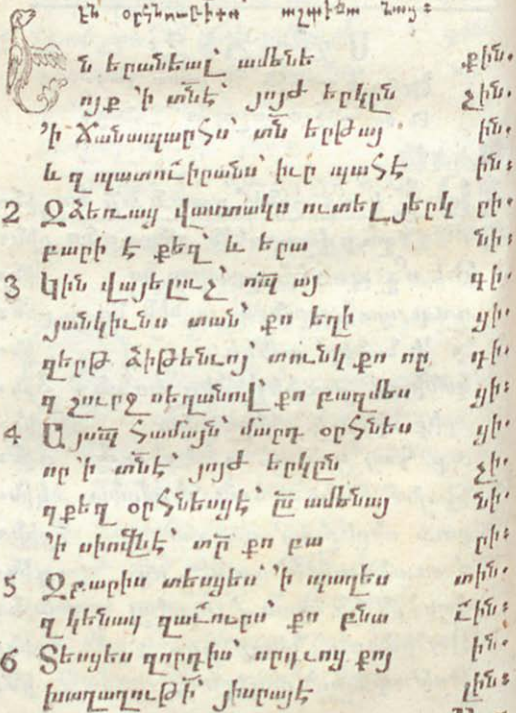 են օրհնութիւն աշխիեա նայ։
Են երանեալ ամենե քին.
ոյք ՚ի տնէ յոյժ երկըն չին.
՚ի Ճանապարհս տն երթայ ին.
և զ պատուիրանս իւր պահէ ին։
2 Զձեռայ վաստակս ուտել յերկ րի.
բարի է քեզ և երա նի։
3 Կին վայելուչ որպ այ գի.
յանկիւնս տան քո եղի ցի.
զերթ ձիթենւոյ տունկ քո որ դի.
զ շուրջ սեղանով քո բազմես ցի։
4 Այսպ համայն մարդ օրհնես ցի.
որ ՚ի տնէ յոյժ երկըն չի.
զքեզ օրհնեսցէ տր ամենայ նի.
՚ի սիովնէ տր քո բա րի։
5 Զբարիս տեսցես ՚ի պաղես տին.
զ կենաց զաւուրս քո բնա ւին։
6 Տեսցես զորդիս որդւոյ քոյ ին.
խաղաղութի յիսրայէ լին։